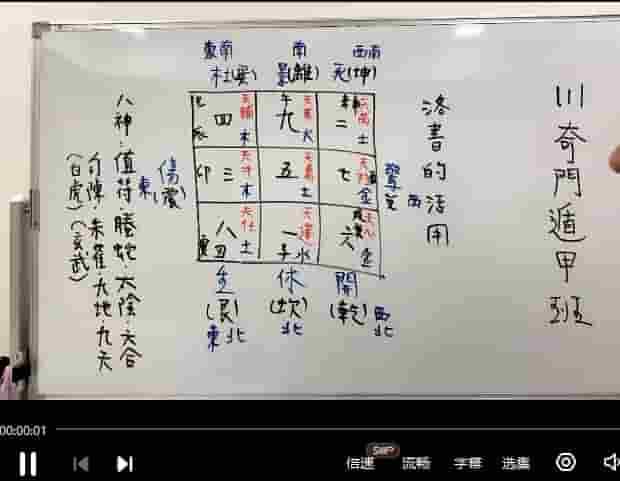 東南
南
西南
杜(巽)
景(離)
死(坤)
巳 四 天輔 木
辰
午 九 火
二 土
卯 三 木
五 土
七 金
八 土
寅 丑
一 水
子
六 金
傷
(震)
東
驚
西
生
(艮)
東北
休
(坎)
北
開
(乾)
西北
八神:值符 騰蛇 太陰 六合
勾陳 朱雀 九地 九天
(白虎) (玄武)
洛書的活用
川奇門遁甲班
00:00:01
SVIP
倍速
流暢
字幕
選集